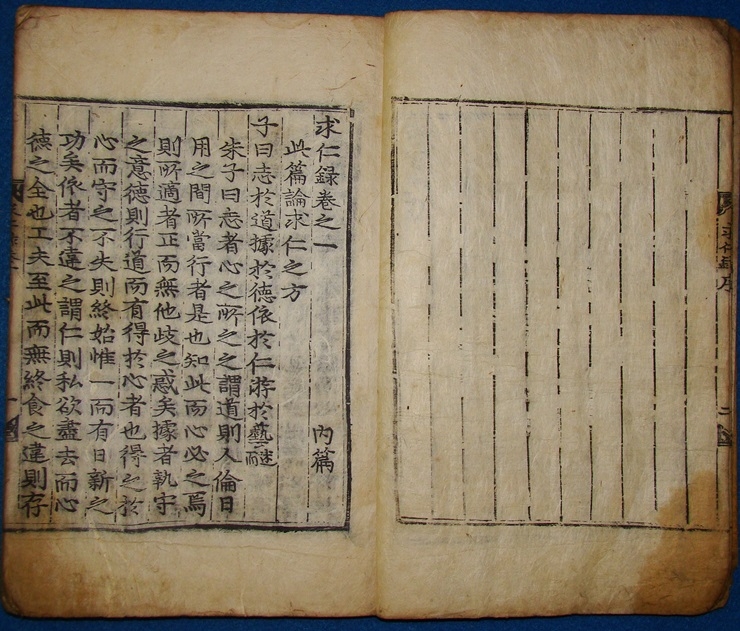 求仁録序
二
求仁録卷之一
內篇
此篇論求仁之方
子曰志於道據於德依於仁游於藝
朱子曰志者心之所之之謂道則人倫日
用之間所當行者是也知此而心必之焉
則所適者正而無他歧之惑矣據者執守
之意德則行道而有得於心者也得之於
心而守之不失則終始惟一而有日新之
功矣依者不違之謂仁則私欲盡去而心
德之全也工夫至此而無終食之違則存
一